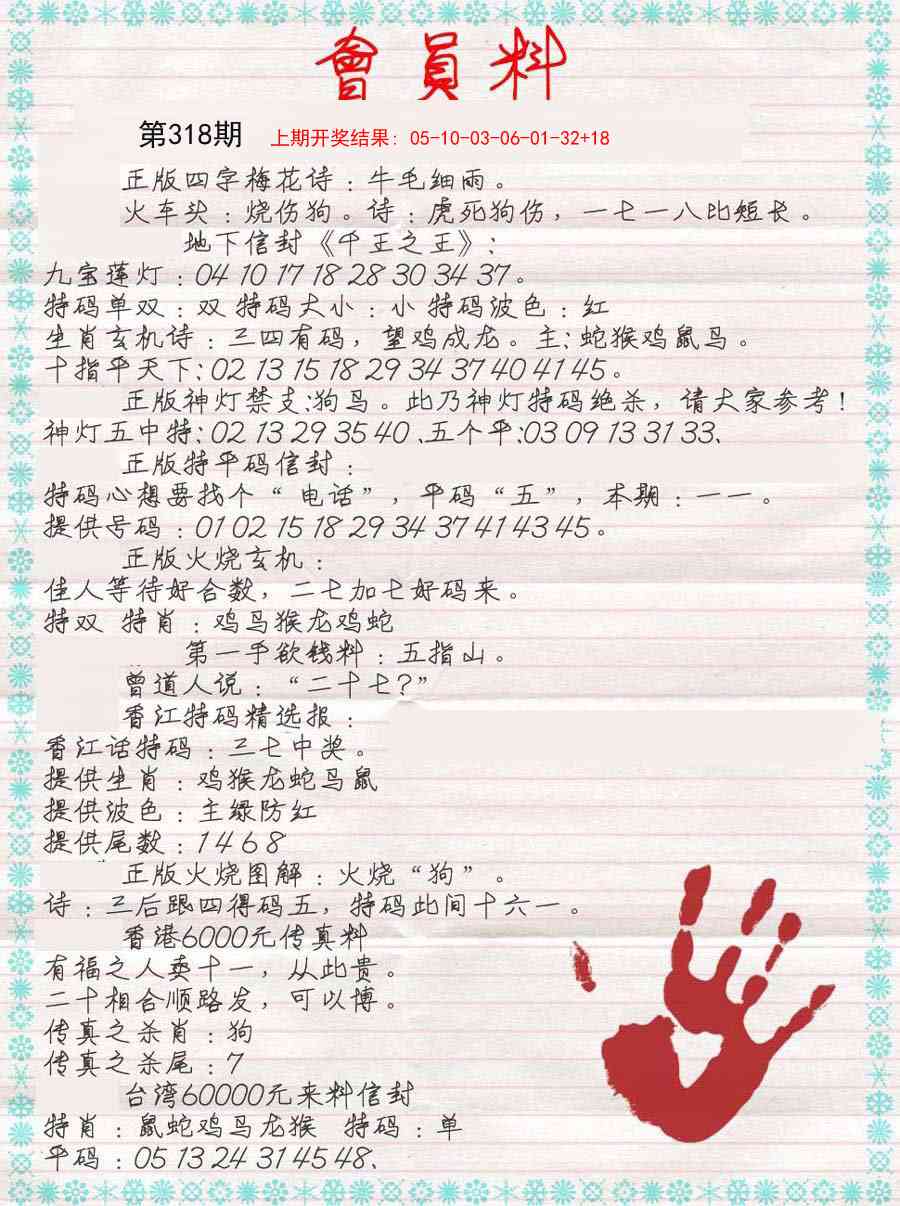 會員料
第318期 上期开奖结果: 05-10-03-06-01-32+18
正版四字梅花诗：牛毛细雨。
火车头：烧伤狗。诗：虎死狗伤，一七一八比短长。
地下信封《千王之王》：
九宝莲灯：04 10 17 18 28 30 34 37。
特码单双：双 特码大小：小 特码波色：红
生肖玄机诗：三四有码，望鸡成龙。主：蛇猴鸡鼠马。
十指平天下：02 13 15 18 29 34 37 40 41 45。
正版神灯禁支：狗马。此乃神灯特码绝杀，请大家参考！
神灯五中特：02 13 29 35 40 、五个平：03 09 13 31 33、
正版特平码信封：
特码心想要找个“ 电话”，平码“五”，本期：一一。
提供号码：01 02 15 18 29 34 37 41 43 45。
正版火烧玄机：
佳人等待好合数，二七加七好码来。
特双 特肖：鸡马猴龙鸡蛇
第一手欲钱料：五指山。
曾道人说：“二十七？”
香江特码精选报：
香江话特码：三七中奖。
提供生肖：鸡猴龙蛇马鼠
提供波色：主绿防红
提供尾数：1 4 6 8
正版火烧图解：火烧“狗”。
诗：三后跟四得码五，特码此间十六一。
香港6000元传真料
有福之人卖十一，从此贵。
二十相合顺路发，可以博。
传真之杀肖：狗
传真之杀尾：7
台湾60000元来料信封
特肖：鼠蛇鸡马龙猴 特码：单
平码：05 13 24 31 45 48、